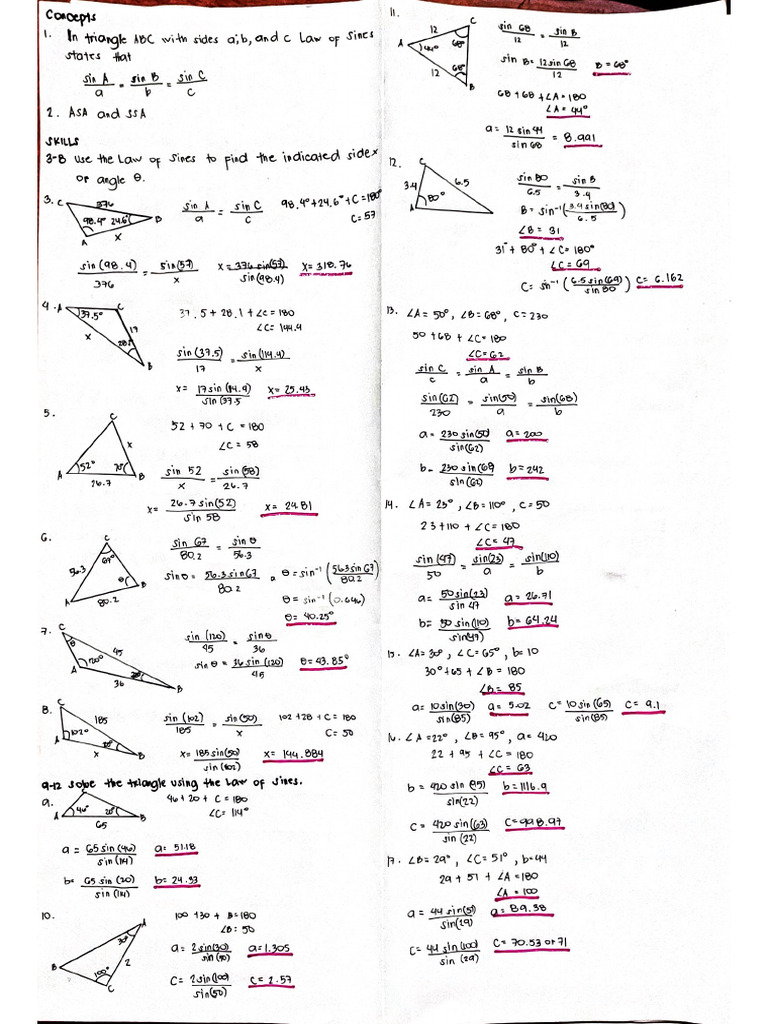 Concepts
1. In triangle ABC with sides a, b, and c Law of sines
states that
sin A / a = sin B / b = sin C / c
2. ASA and SSA
SKILLS
3-8 Use the Law of Sines to find the indicated side x
or angle θ.
3. C 376 B 98.4° 24.6° A x
sin A / a = sin C / c
98.4° + 24.6° + C = 180°
C = 57
sin (98.4) / 376 = sin (57) / x
x = 376 sin(57) / sin(98.4)
x = 318.76
4. A C 37.5° 17 x B
37.5 + 28.1 + ∠C = 180
∠C = 144.4
sin (37.5) / 17 = sin (114.4) / x
x = 17 sin (114.4) / sin (37.5
x = 25.43
5. C x A 52° 70° B 26.7
52 + 70 + C = 180
∠C = 58
sin 52 / x = sin (58) / 26.7
x = 26.7 sin(52) / sin 58
x = 24.81
6. C 67° 56.3 θ B A 80.2
sin 67 / 80.2 = sin θ / 56.3
sin θ = 56.3 sin 67 / 80.2
θ = sin⁻¹ (563 sin 67 / 80.2)
θ = sin⁻¹ (0.646)
θ = 40.25°
7. C θ 45 A 120° 36 B
sin (120) / 45 = sin θ / 36
sin θ = 36 sin (120) / 45
θ = 43.85°
8. C 185 102° A x B
sin (102) / 185 = sin (50) / x
102 + 28 + C = 180
C = 50
x = 185 sin(50) / sin (102)
x = 144.884
9-12 Solve the triangle using the Law of Sines.
9. C A 46° 20° B 65
46 + 20 + C = 180
∠C = 114°
a = 65 sin (46) / sin (114)
a = 51.18
b = 65 sin (20) / sin (114)
b = 24.33
10. A 30° 2 B 100° C
100 + 30 + B = 180
∠B = 50
a = 2 sin(30) / sin (50)
a = 1.305
C = 2 sin(100) / sin(50)
C = 2.57
11. C 12 A 44° 68° 12 68° B
sin 68 / 12 = sin B / 12
sin B = 12 sin 68 / 12
B = 68°
68 + 68 + ∠A = 180
∠A = 44°
a = 12 sin 44 / sin 68 = 8.991
12. C 3.4 6.5 80° A
sin 80 / 6.5 = sin B / 3.4
B = sin⁻¹ (3.4 sin(80) / 6.5)
∠B = 31
31° + 80° + ∠C = 180°
∠C = 69
C = sin⁻¹ (6.5 sin (69) / sin 80)
C = 6.162
13. ∠A = 50°, ∠B = 68°, C = 230
50 + 68 + ∠C = 180
∠C = 62
sin C / c = sin A / a = sin B / b
sin (62) / 230 = sin (50) / a = sin (68) / b
a = 230 sin (50) / sin (62)
a = 200
b = 230 sin (68) / sin (62)
b = 242
14. ∠A = 23°, ∠B = 110°, C = 50
23 + 110 + ∠C = 180
∠C = 47
sin (47) / 50 = sin(23) / a = sin(110) / b
a = 50 sin (23) / sin 47
a = 26.71
b = 50 sin (110) / sin(47)
b = 64.24
15. ∠A = 30°, ∠C = 65°, b = 10
30° + 65 + ∠B = 180
∠B = 85
a = 10 sin(30) / sin(85)
a = 5.02
C = 10 sin (65) / sin (85)
C = 9.1
16. ∠A = 22°, ∠B = 95°, a = 420
22 + 95 + ∠C = 180
∠C = 63
b = 420 sin (95) / sin(22)
b = 1116.9
C = 420 sin (63) / sin (22)
C = 998.97
17. ∠B = 29°, ∠C = 51°, b = 44
29 + 51 + ∠A = 180
∠A = 100
a = 44 sin (51) / sin(29)
a = 89.38
C = 44 sin (100) / sin (29)
C = 70.53 or 71